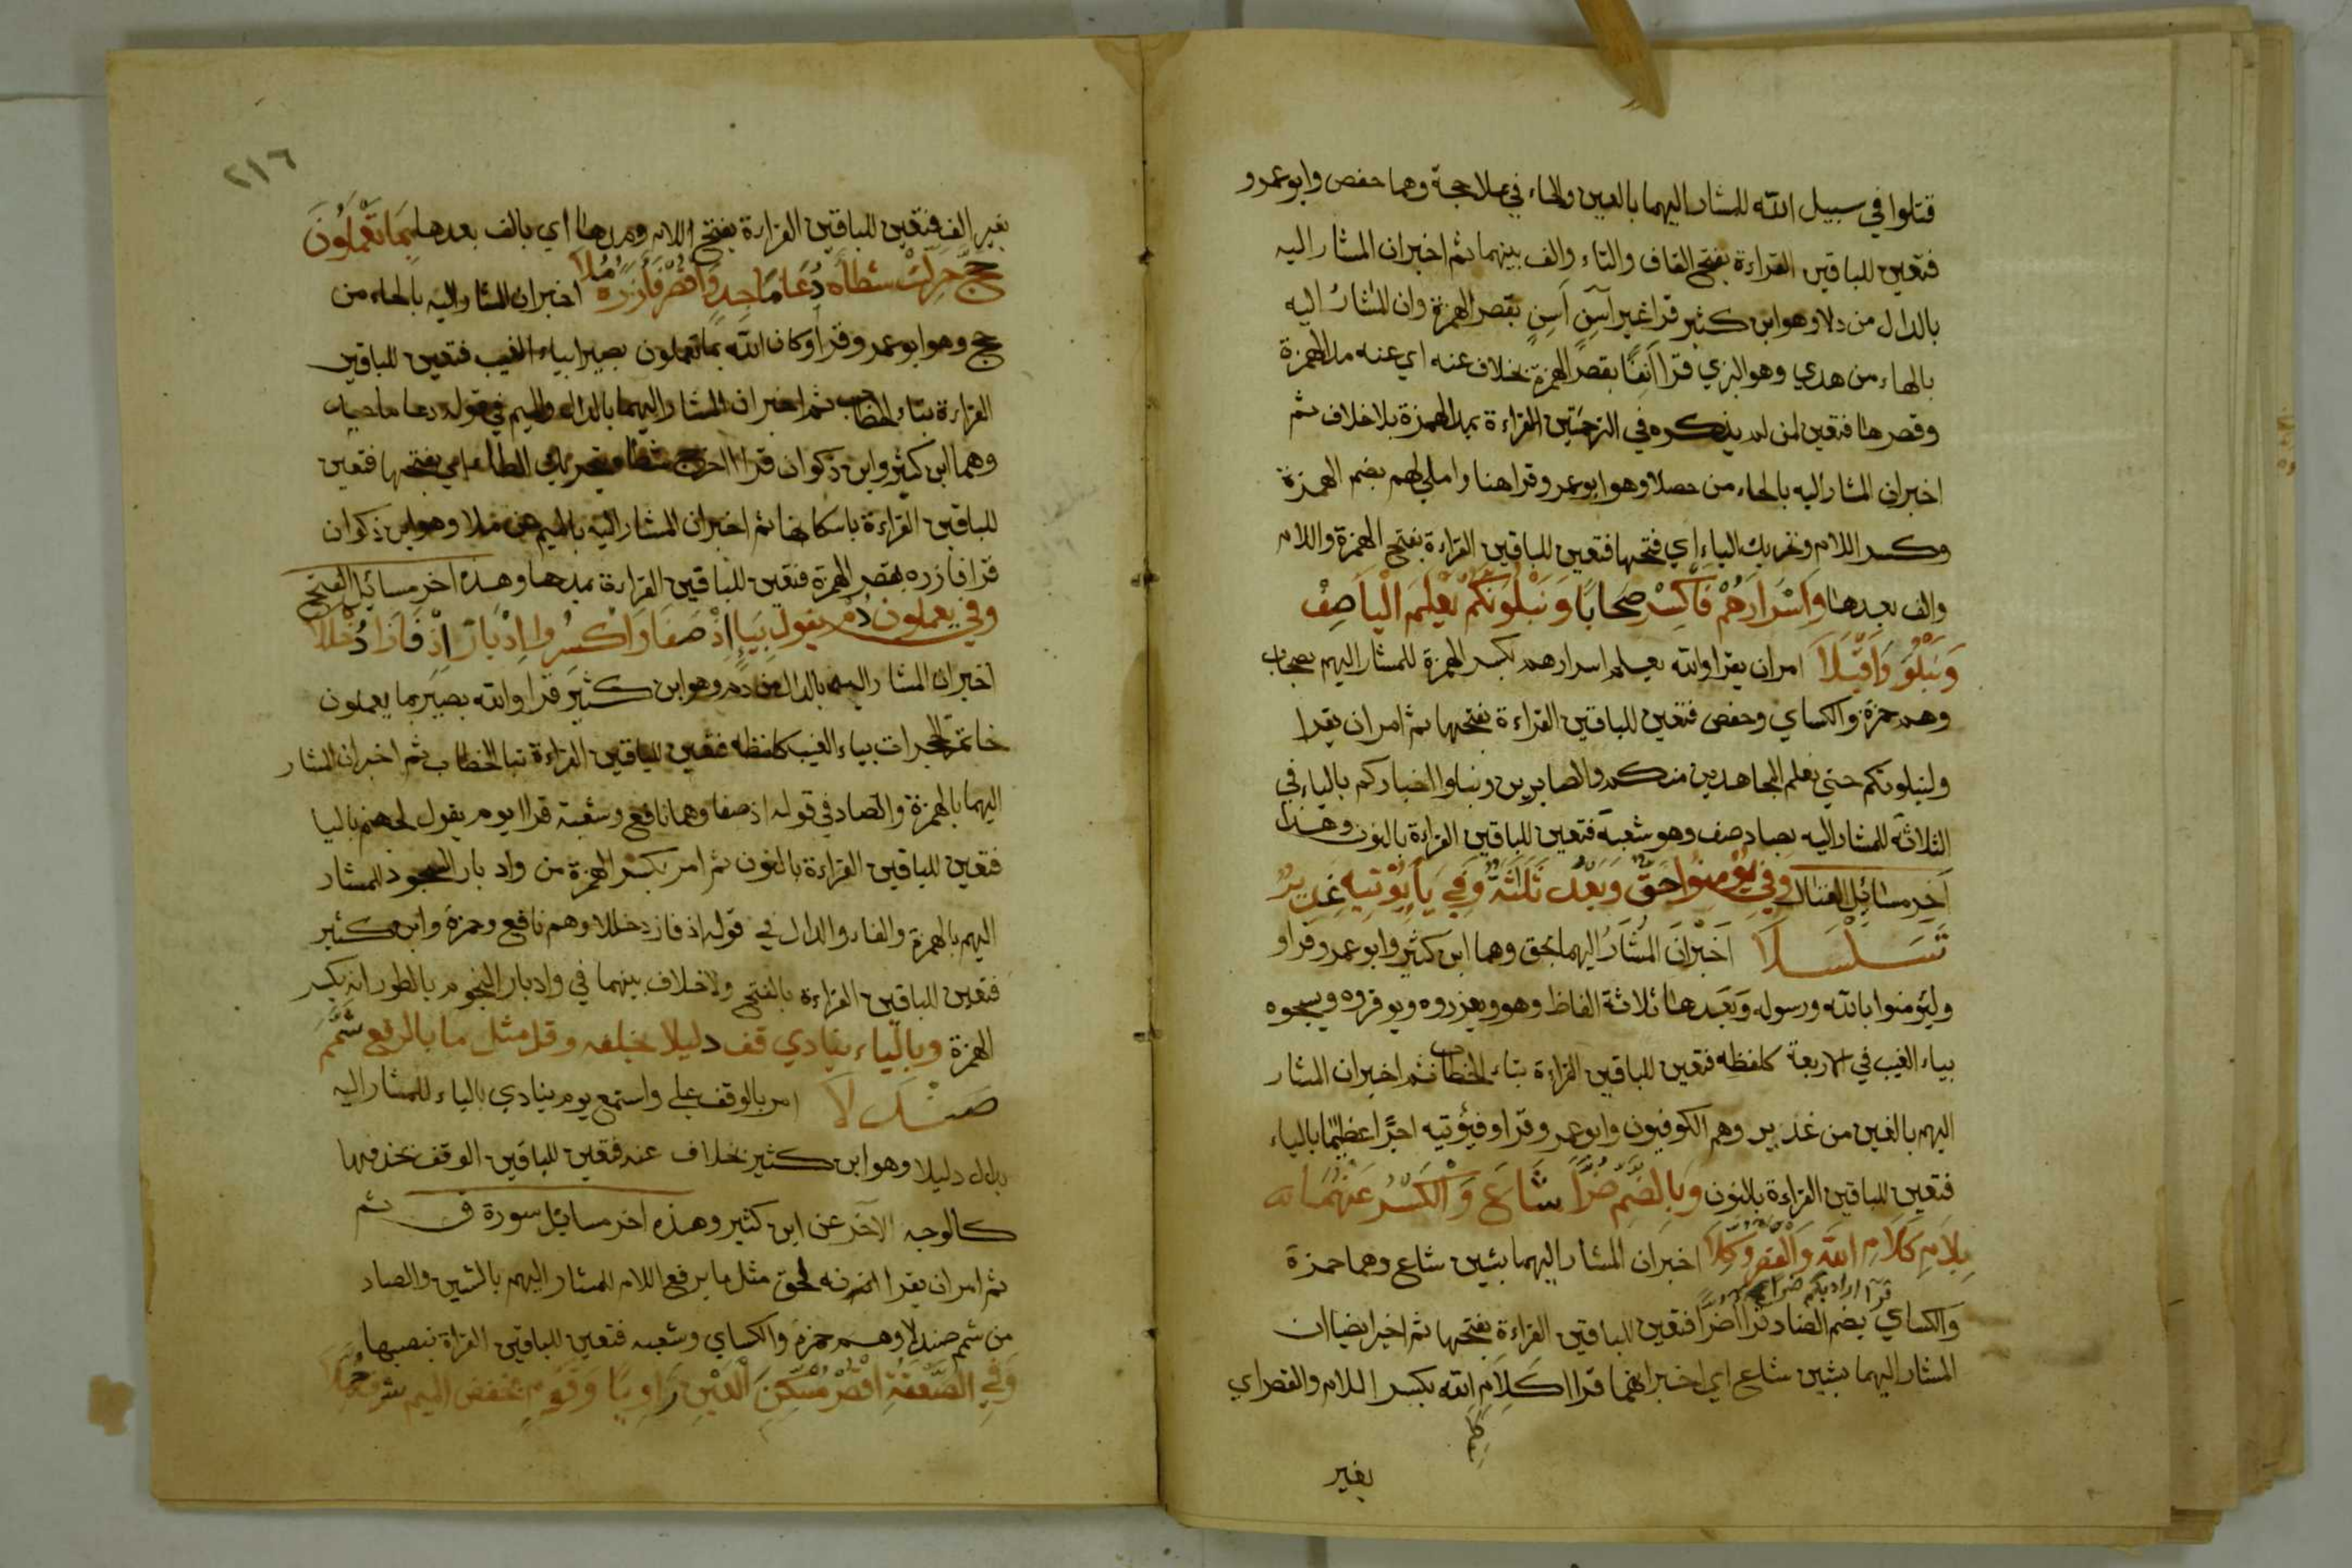 قتلوا في سبيل الله للمشار اليهما بالعين والحاء في علا حجة وهما حفص وابو عمرو
فتعين للباقين القراءة بفتح القاف والتاء والف بينهما ثم اخبر ان المشار اليه
بالدال من دلا وهو ابن كثير قرا غير آسِنٍ اَسِنٍ بقصر الهمزة وان المشار اليه
بالهاء من هدي وهو البزي قرا اَنِفًا بقصر الهمزة بخلاف عنه اي عنه مد الهمزة
وقصرها فتعين لمن لم يذكره في الترجمتين القراءة بمد الهمزة بلا خلاف ثم
اخبر ان المشار اليه بالحاء من حصلا وهو ابو عمرو قرا هنا واملي لهم بضم الهمزة
وكسر اللام وتحريك الياء اي فتحها فتعين للباقين القراءة بفتح الهمزة واللام
والف بعدها وَاَسْرَارَهُمْ فَاكْسِرْ صِحَابًا وَنَبْلُوَنَّكُمْ نَعْلَمَ الْيَا صِفْ
وَنَبْلُوَ وَاقْبَلَا امر ان يقرا والله يعلم اسرارهم بكسر الهمزة للمشار اليهم بصحاب
وهم حمزة والكساي وحفص فتعين للباقين القراءة بفتحها ثم امر ان يقرا
ولنبلونكم حتي نعلم المجاهدين منكم والصابرين ونبلوا اخباركم بالياء في
الثلاثة للمشار اليه بصاد صف وهو شعبة فتعين للباقين القراءة بالنون وهذا
آخر مسائل القتال وَفِي يُؤْمِنُوا حَقٌّ وَبَعْدُ ثَلَثَةٌ وَفِي يَا يُؤْتِيهِ غَدِيرٌ
تَسَلْسَلَا اخبر ان المشار اليهما بحق وهما ابن كثير وابو عمرو قراو
وليؤمنوا بالله ورسوله وبعدها ثلاثة الفاظ وهو ويعزروه ويوقروه ويسبحوه
بياء الغيب في الاربعة كلفظه فتعين للباقين القراءة بتاء الخطاب ثم اخبر ان المشار
اليهم بالغين من غدير وهم الكوفيون وابو عمرو قراو فيؤتيه اجرًا عظيمًا بالياء
فتعين للباقين القراءة بالنون وَبِالضَّمِّ ضُرًّا شَاعَ وَالْكَسْرُ عَنْهُمَا
بِلَامِ كَلَامِ اللهِ وَالْقَصْرُ وُكِّلَا اخبر ان المشار اليهما بشين شاع وهما حمزة
قرآ ان اراد بكم ضرا
والكساي بضم الضاد قرآ ضرًّا فتعين للباقين القراءة بفتحها ثم اخبر ايضا ان
المشار اليهما بشين شاع اي اخبر انهما قراا كَلِاَم الله بكسر اللام والقصر اي
كَلِمَ
بغير
٢١٦
بغير الف فتعين للباقين القراءة بفتح اللام ومدها اي بالف بعدها بِمَا تَعْمَلُونَ
حَجَّ حَرِّكْ شَطْأَهُ دُعَا مَاجِدٍ وَاقْصُرْ فَآزَرَهُ مُلَا اخبر ان المشار اليه بالحاء من
حج وهو ابو عمرو قرا وكان الله بما تعملون بصيرا بياء الغيب فتعين للباقين
القراءة بتاء الخطاب ثم اخبر ان المشار اليهما بالدال والميم في قوله دعا ماجد
وهما ابن كثير وابن ذكوان قراا اخرج شطاه بتحريك الطاء اي بفتحها فتعين
للباقين القراءة باسكانها ثم اخبر ان المشار اليه بالميم من ملا وهو ابن ذكوان
قرا فازره بقصر الهمزة فتعين للباقين القراءة بمدها وهذه آخر مسائيل الفتح
وفي يعملون دُمْ يقول بِيَاءٍ اِذْ صَفَا وَاكْسِرُوا اِدْبَارَ اِذْ فَازَ دُخْلُلَا
اخبر ان المشار اليه بالدال من دم وهو ابن كثير قرا والله بصير بما يعملون
خاتمة الحجرات بياء الغيب كلفظه فتعين للباقين القراءة بتا الخطاب ثم اخبر ان المشار
اليهما بالهمزة والصاد في قوله اذ صفا وهما نافع وشعبة قراا يوم يقول لجهنم باليا
فتعين للباقين القراءة بالنون ثم امر بكسر الهمزة من وادبار السجود للمشار
اليهم بالهمزة والفاء والدال في قوله اذ فاز دخللا وهم نافع وحمزة وابن كثير
فتعين للباقين القراءة بالفتح ولا خلاف بينهما في وادبار النجوم بالطور انه بكسر
الهمزة وبالياء ينادي قف دليلا بخلفه وقل مثل ما بالرفع شَمَّمَ
صَنْدَلَا امر بالوقف علي واستمع يوم ينادي بالياء للمشار اليه
بدال دليلا وهو ابن كثير بخلاف عنه فتعين للباقين الوقف بحذفها
كالوجه الآخر عن ابن كثير وهذه اخر مسائيل سورة ق ثم
ثم امر ان يقرا انه لحق مثل ما برفع اللام للمشار اليهم بالشين والصاد
من شمم صندلا وهم حمزة والكساي وشعبه فتعين للباقين القراة بنصبها
وَفِي الصَّعْقَةِ اقْصُرْ مُسْكِنَ الْعَيْنِ رَاوِيًا وَقَوْمٍ بخفض الميم شرف حُمَّلَا